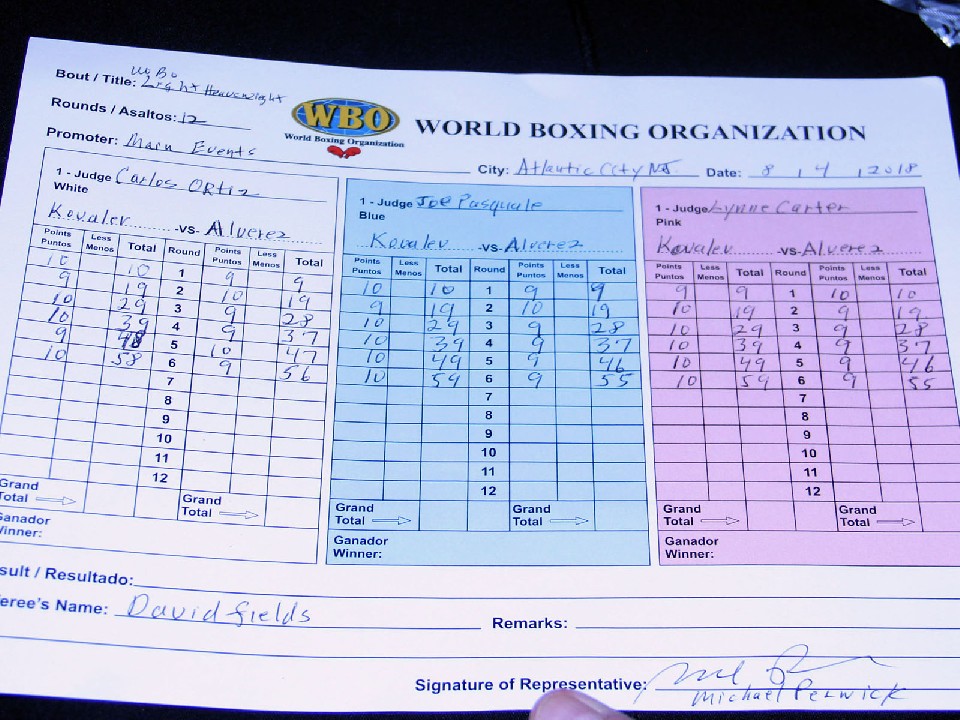 WBO
Bout / Title: Light Heavyweight
Rounds / Asaltos: 12
Promoter: Main Events
WBO
World Boxing Organization
WORLD BOXING ORGANIZATION
City: Atlantic City NJ. Date: 8 / 4 / 2018
1 - Judge Carlos Ortiz
White
Kovalev -vs- Alverez
Points Puntos Less Menos Total Round Points Puntos Less Menos Total
10 10 1 9 9
9 19 2 10 19
10 29 3 9 28
10 39 4 9 37
9 48 5 10 47
10 58 6 9 56
7
8
9
10
11
12
Grand Total Grand Total
Ganador
Winner:
1 - Judge Joe Pasquale
Blue
Kovalev -vs- Alverez
Points Puntos Less Menos Total Round Points Puntos Less Menos Total
10 10 1 9 9
9 19 2 10 19
10 29 3 9 28
10 39 4 9 37
10 49 5 9 46
10 59 6 9 55
7
8
9
10
11
12
Grand Total Grand Total
Ganador
Winner:
1 - Judge Lynne Carter
Pink
Kovalev -vs- Alverez
Points Puntos Less Menos Total Round Points Puntos Less Menos Total
9 9 1 10 10
10 19 2 9 19
10 29 3 9 28
10 39 4 9 37
10 49 5 9 46
10 59 6 9 55
7
8
9
10
11
12
Grand Total Grand Total
Ganador
Winner:
sult / Resultado:
feree's Name: David fields
Remarks:
Signature of Representative:
Michael Perwick